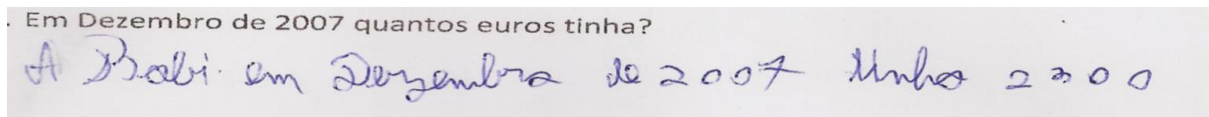 . Em Dezembro de 2007 quantos euros tinha?
A Babi em Dezembro de 2007 tinha